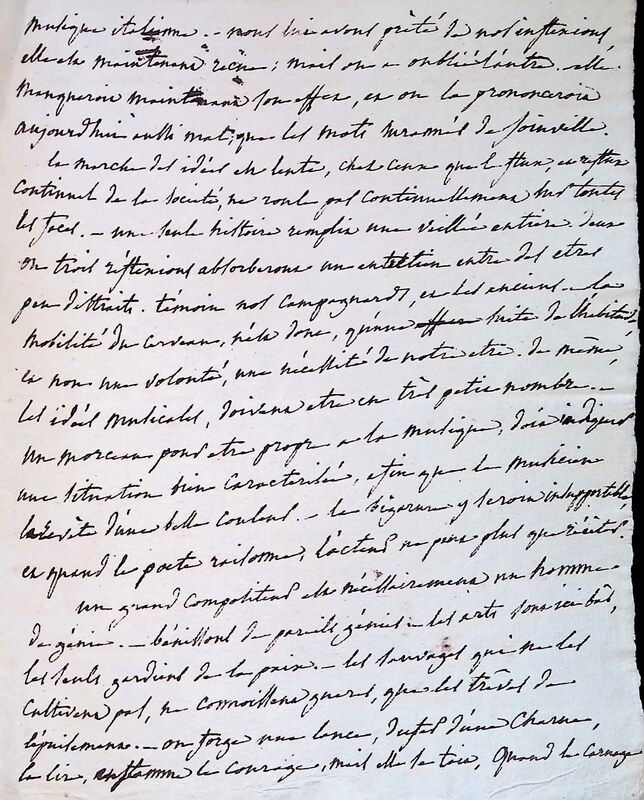 musique italienne. — nous lui avons prêté de nos inflexions
elle est maintenant reçue; mais on a oublié l'autre. elle
manqueroit maintenant son effet, et on la prononceroit
aujourd'hui aussi mal, que les mots surannés de Joinville.
la marche des idées est lente, chez ceux que le flux, et reflux
continuel de la société, ne roule pas continuellement sur toutes
les faces. — une seule histoire remplit une veillée entiere. deux
ou trois réflexions absorberont un entretien entre des etres
peu distraits. témoin nos campagnards, et les anciens. — la
mobilité du cerveau, n'est donc, qu'une suite de l'habitude
et non une volonté, une nécessité de notre etre. de même,
les idées musicales, doivent etre en très petit nombre. —
un morceau pour etre propre a la musique, doit indiquer
une situation bien caracterisée, afin que le musicien
la revête d'une belle couleur. — la bigarure y seroit insupportable,
et quand le poete raisonne, l'acteur ne peut plus que réciter.
un grand compositeur est nécessairement un homme
de génie. — bénissons de pareils génies — les arts sont ici bas,
les seuls gardiens de la paix. — les sauvages qui ne les
cultivent pas, ne connoissent gueres, que les trèves de
l'épuisement. — on forge une lance, du fer d'une charue,
la lire, enflamme le courage, mais elle se tait, quand le carnage